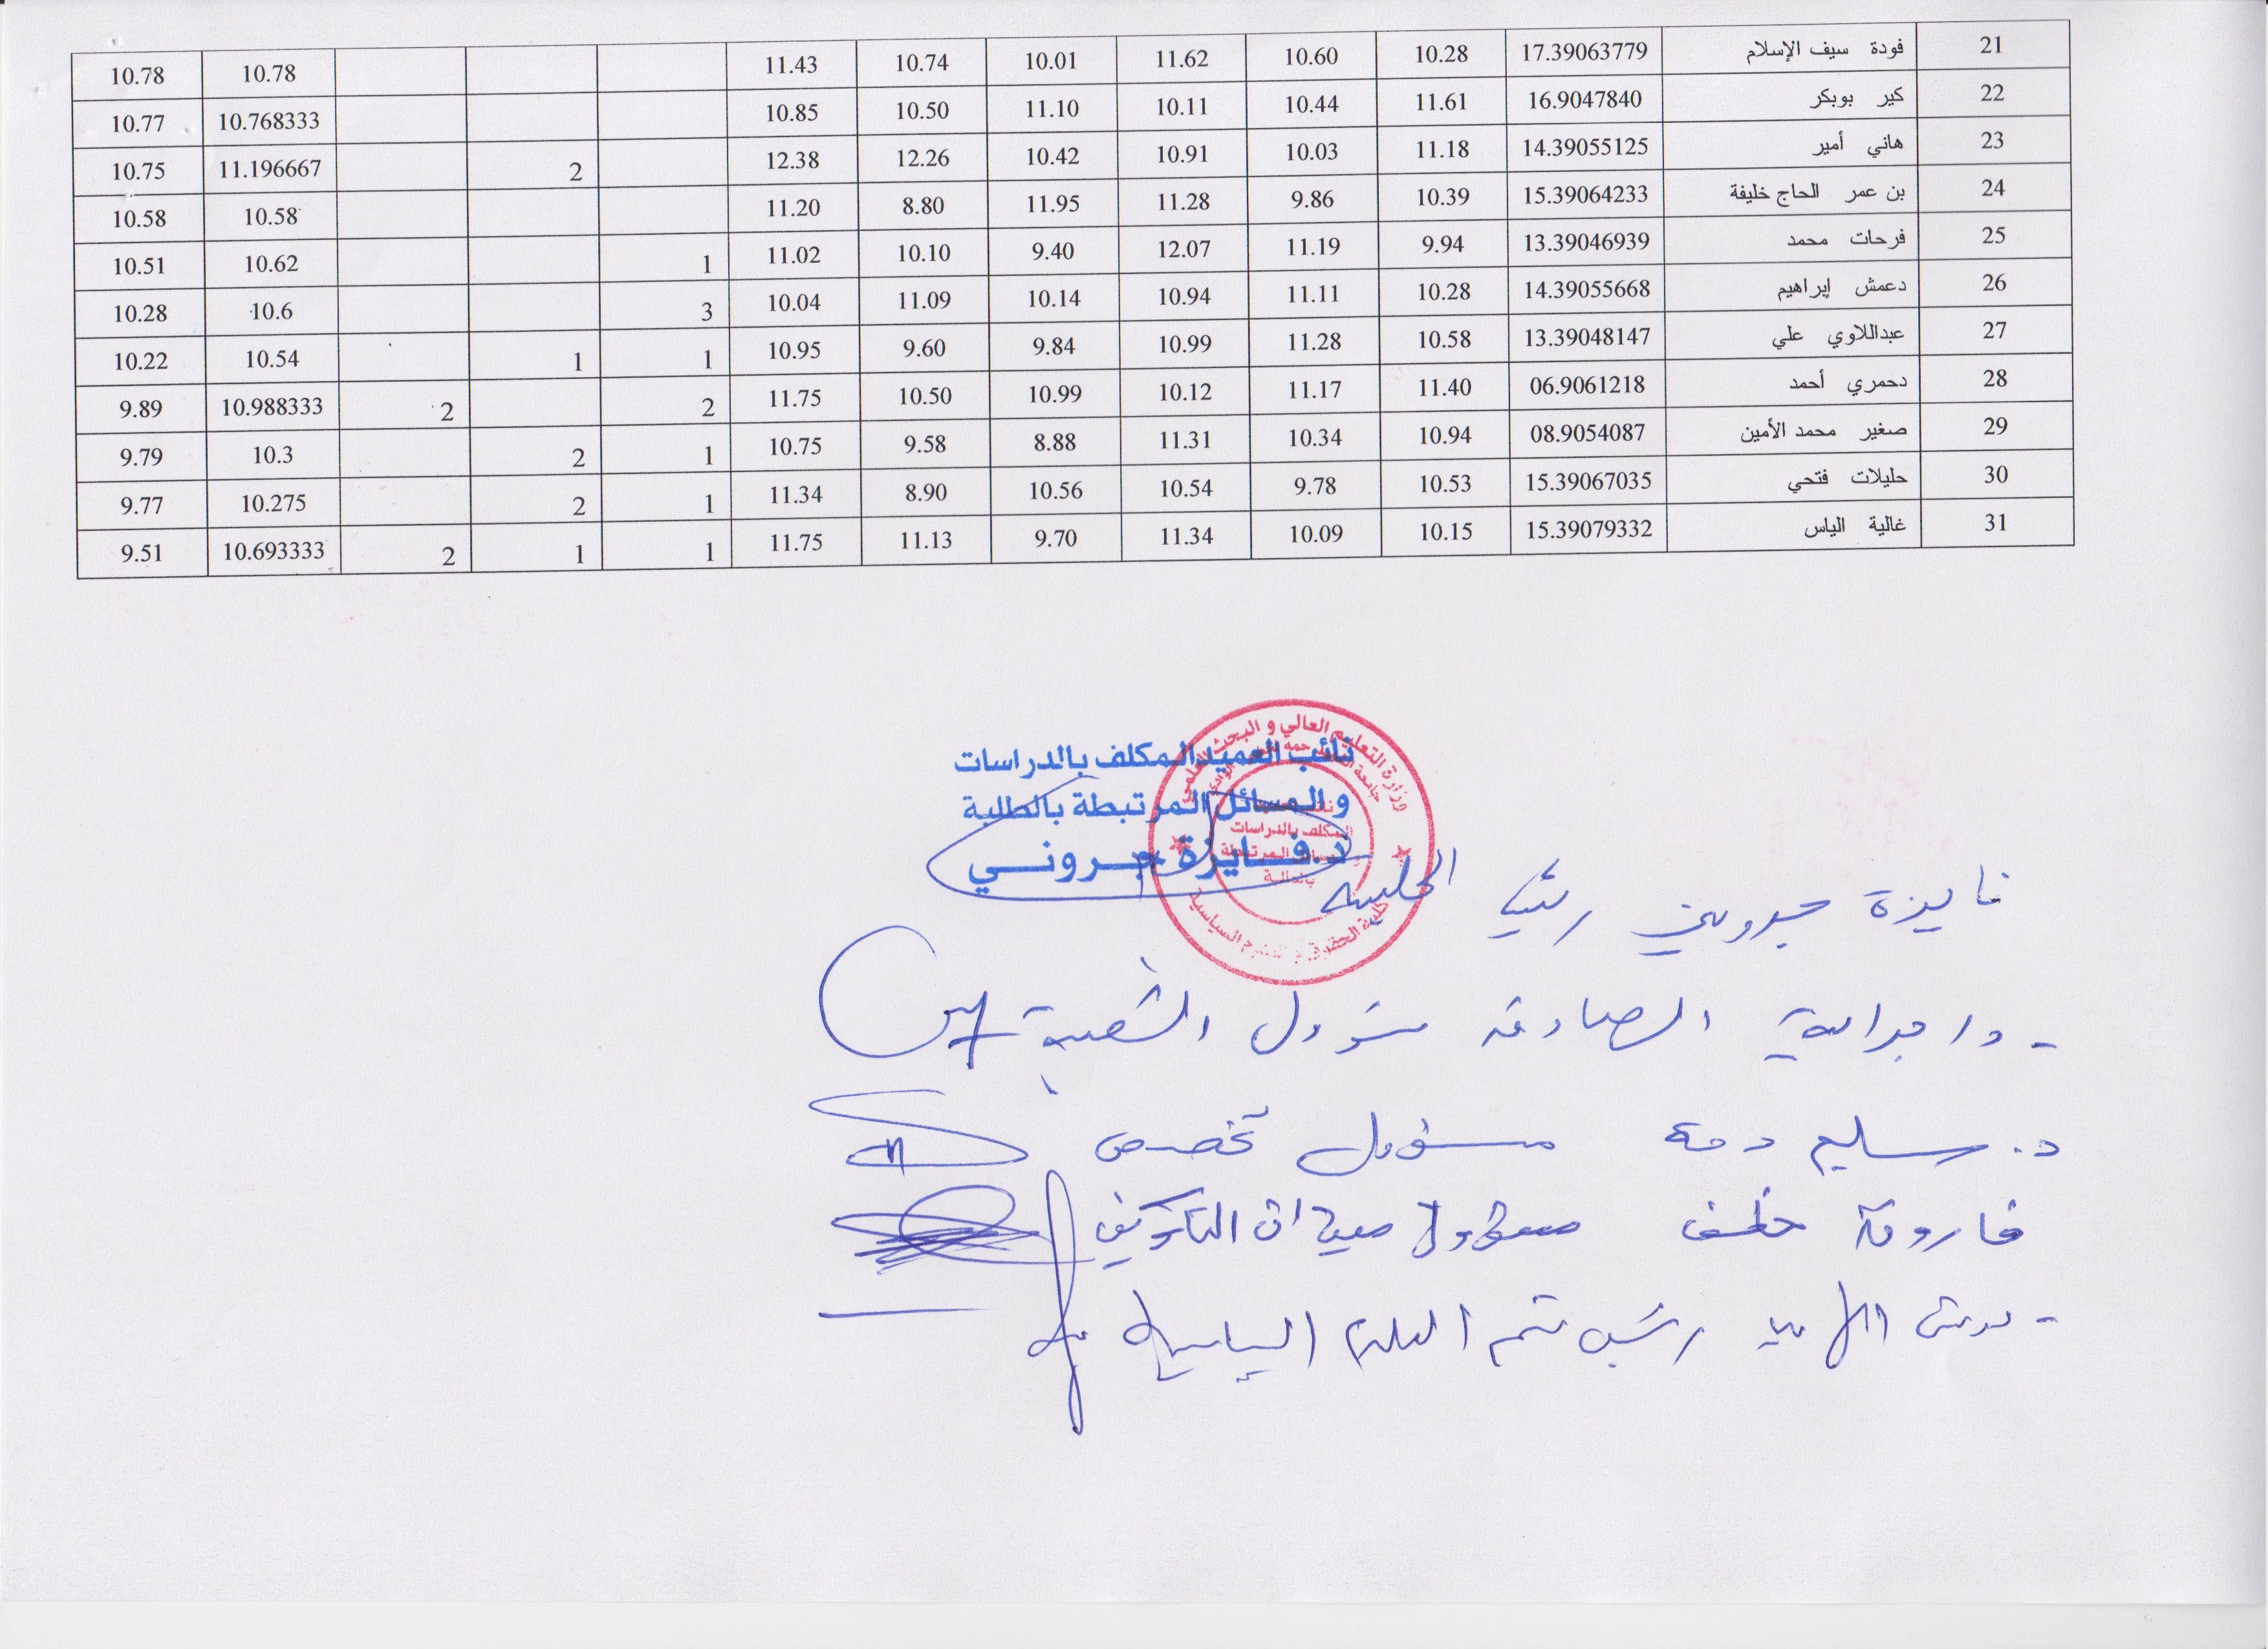 21 فودة سيف الإسلام 17.39063779 10.28 10.60 11.62 10.01 10.74 11.43 10.78 10.78
22 كير بوبكر 16.9047840 11.61 10.44 10.11 11.10 10.50 10.85 10.768333 10.77
23 هاني أمير 14.39055125 11.18 10.03 10.91 10.42 12.26 12.38 2 11.196667 10.75
24 بن عمر الحاج خليفة 15.39064233 10.39 9.86 11.28 11.95 8.80 11.20 10.58 10.58
25 فرحات محمد 13.39046939 9.94 11.19 12.07 9.40 10.10 11.02 1 10.62 10.51
26 دعمش إبراهيم 14.39055668 10.28 11.11 10.94 10.14 11.09 10.04 3 10.6 10.28
27 عبداللاوي علي 13.39048147 10.58 11.28 10.99 9.84 9.60 10.95 1 1 10.54 10.22
28 دحمري أحمد 06.9061218 11.40 11.17 10.12 10.99 10.50 11.75 2 2 10.988333 9.89
29 صغير محمد الأمين 08.9054087 10.94 10.34 11.31 8.88 9.58 10.75 1 2 10.3 9.79
30 حليلات فتحي 15.39067035 10.53 9.78 10.54 10.56 8.90 11.34 1 2 10.275 9.77
31 غالية الياس 15.39079332 10.15 10.09 11.34 9.70 11.13 11.75 1 1 2 10.693333 9.51
نائب العميد المكلف بالدراسات
و المسائل المرتبطة بالطلبة
د.فايزة جروني
وزارة التعليم العالي و البحث العلمي
المكلف بالدراسات
كلية الحقوق و العلوم السياسية
فايزة جروني رئيس الجلسة
الصادق مسؤول الشعبة
د. سليم دحه مسؤول تخصص
فاروق خلف مسؤول ميدان التكوين
رئيس قسم العلوم السياسية